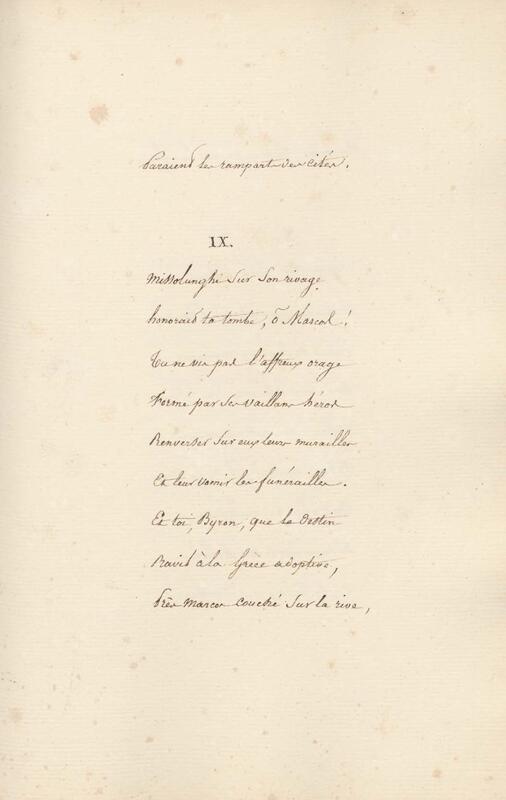 Paraient les remparts des cités.
IX.
Missolunghi sur son rivage
honorait ta tombe, ô Marcos!
Tu ne vis pas l'affreux orage
Formé par ses vaillans héros
Renverser sur eux leurs murailles
Et leur vomir les funérailles.
Et toi, Byron, que le destin
Ravit à la Grèce adoptive,
Près Marcos couché sur la rive,